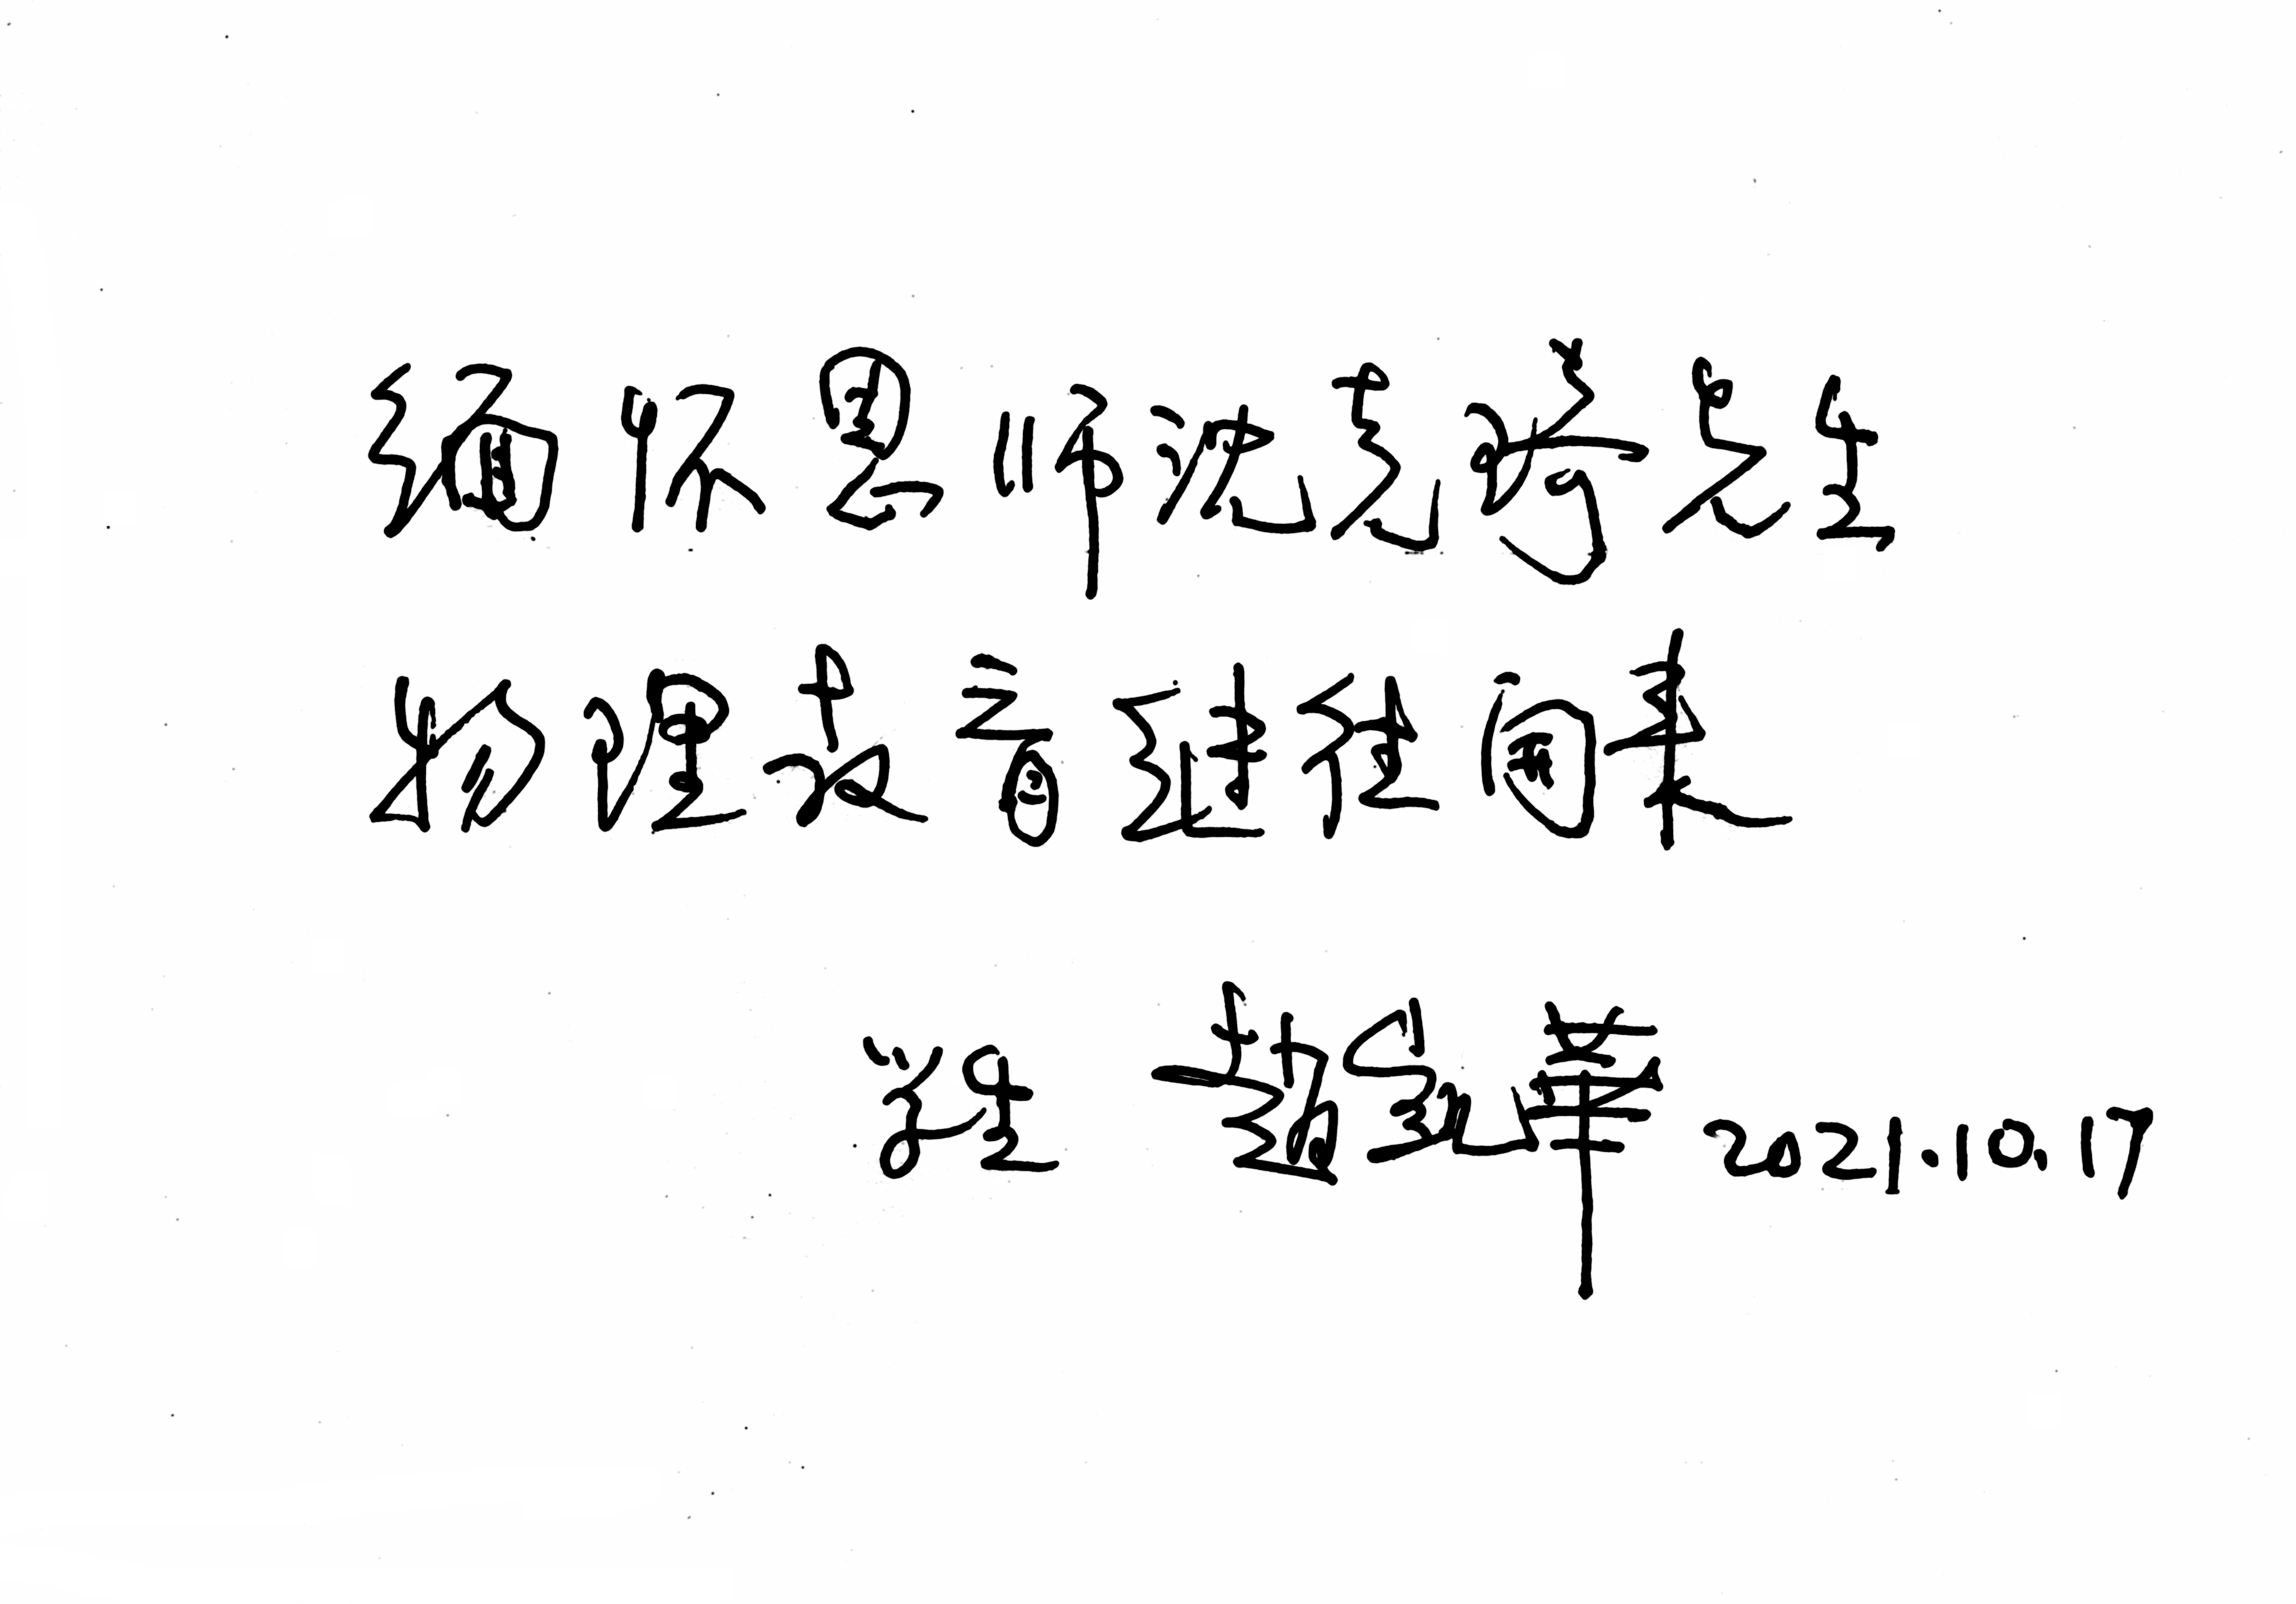 缅怀恩师沈克琦先生
物理教育继往開来
学生 赵凯華 2021.10.17